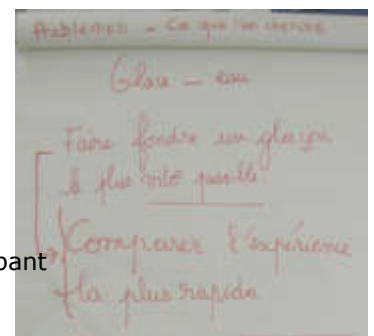 Problèmes - Ce que l'on cherche
Glace - eau
Faire fondre un glaçon
le plus vite possible
Comparer l'expérience
la plus rapide
pant